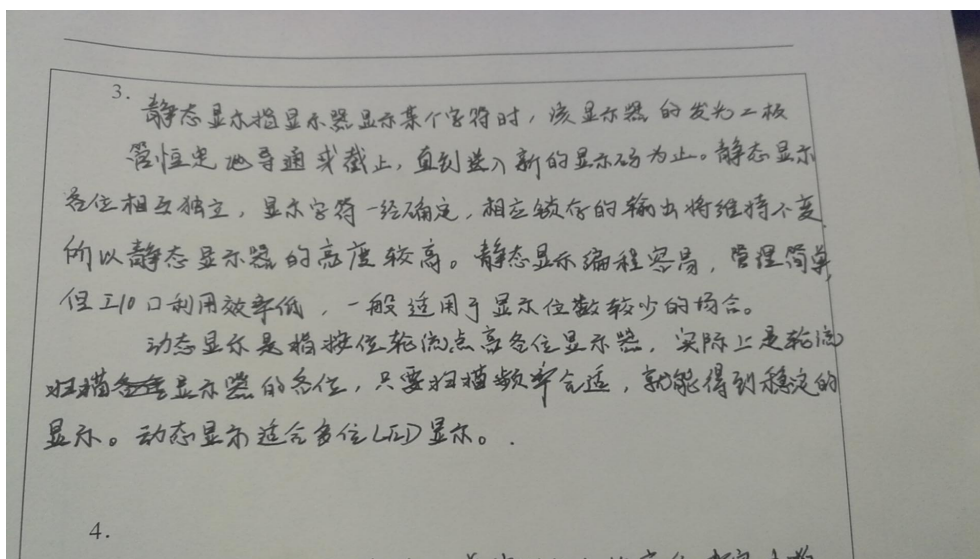 3.
静态显示指显示器显示某个字符时，该显示器的发光二极
管恒定地导通或截止，直到送入新的显示码为止。静态显示
各位相互独立，显示字符一经确定，相应锁存的输出将维持不变
所以静态显示器的亮度较高。静态显示编程容易，管理简单，
但I/O口利用效率低，一般适用于显示位数较少的场合。
动态显示是指按位轮流点亮各位显示器，实际上是轮流
扫描显示器的各位，只要扫描频率合适，就能得到稳定的
显示。动态显示适合多位LED显示。
4.